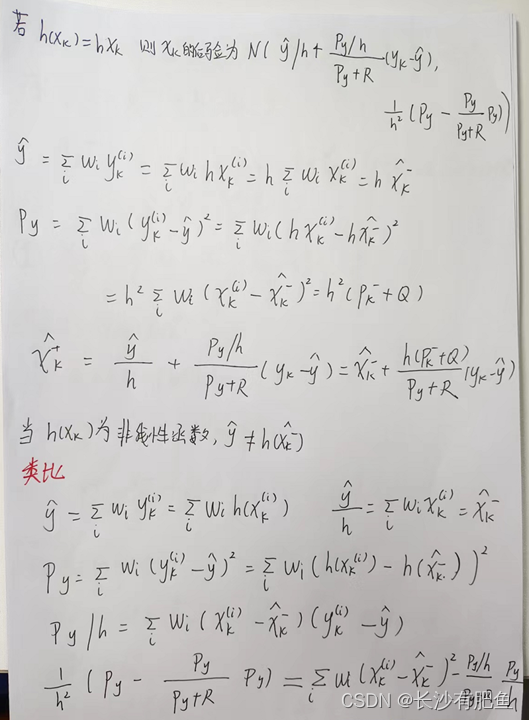 若 h(x_K)=hx_K 则 x_K的后验为 N( ŷ/h + \frac{Py/h}{Py+R}(y_K-ŷ),
\frac{1}{h²}(Py - \frac{Py}{Py+R}Py))
ŷ = Σ_i w_i y_K^{(i)} = Σ_i w_i h x_K^{(i)} = h Σ_i w_i x_K^{(i)} = h x̂_K^-
Py = Σ_i w_i (y_K^{(i)}-ŷ)² = Σ_i w_i (h x_K^{(i)}-h x̂_K^-)²
= h² Σ_i w_i (x_K^{(i)}-x̂_K^-)² = h²(P_K^-+Q)
x̂_K^+ = \frac{ŷ}{h} + \frac{Py/h}{Py+R}(y_K-ŷ) = x̂_K^- + \frac{h(P_K^-+Q)}{Py+R}(y_K-ŷ)
当 h(x_K)为非线性函数, ŷ ≠ h(x̂_K^-)
类比
ŷ = Σ_i w_i y_K^{(i)} = Σ_i w_i h(x_K^{(i)}) \frac{ŷ}{h} = Σ_i w_i x_K^{(i)} = x̂_K^-
Py = Σ_i w_i (y_K^{(i)}-ŷ)² = Σ_i w_i (h(x_K^{(i)}) - h(x̂_K^-))²
Py/h = Σ_i w_i (x_K^{(i)}-x̂_K^-)(y_K^{(i)}-ŷ)
\frac{1}{h²}(Py - \frac{Py}{Py+R}Py) = Σ_i w_i (x_K^{(i)}-x̂_K^-)² - \frac{Py/h}{Py+R} \frac{Py}{h}
CSDN @长沙有肥鱼